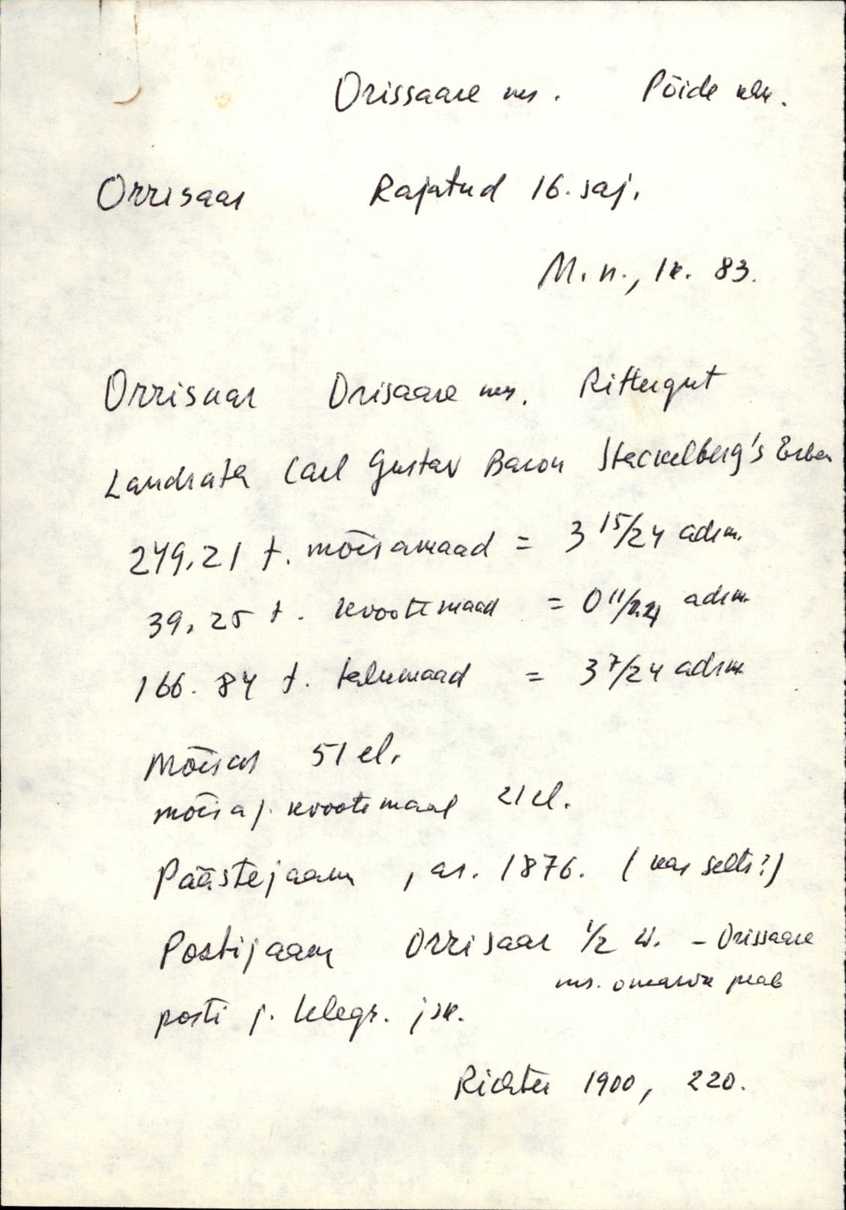 Orissaare ms. Pöide khk.
Orrisaar Rajatud 16. saj.
M. n., lk. 83.
Orrisaar Orisaare ms. Rittergut
Landrath Carl Gustav Baron Stackelberg's Erben
249,21 t. mõisamaad = 3 15/24 adrm.
39,25 t. kvootimaad = 0 11/24 adrm.
166.84 t. talumaad = 3 7/24 adrm
Mõisas 51 el.
mõisa j. kvootimaal 21 el.
Päästejaam, as. 1876. (kas selts?)
Postijaam Orrisaar 1/2 w. - Orissaare
ms. omanik peab
posti j. telegr. jsk.
Richter 1900, 220.